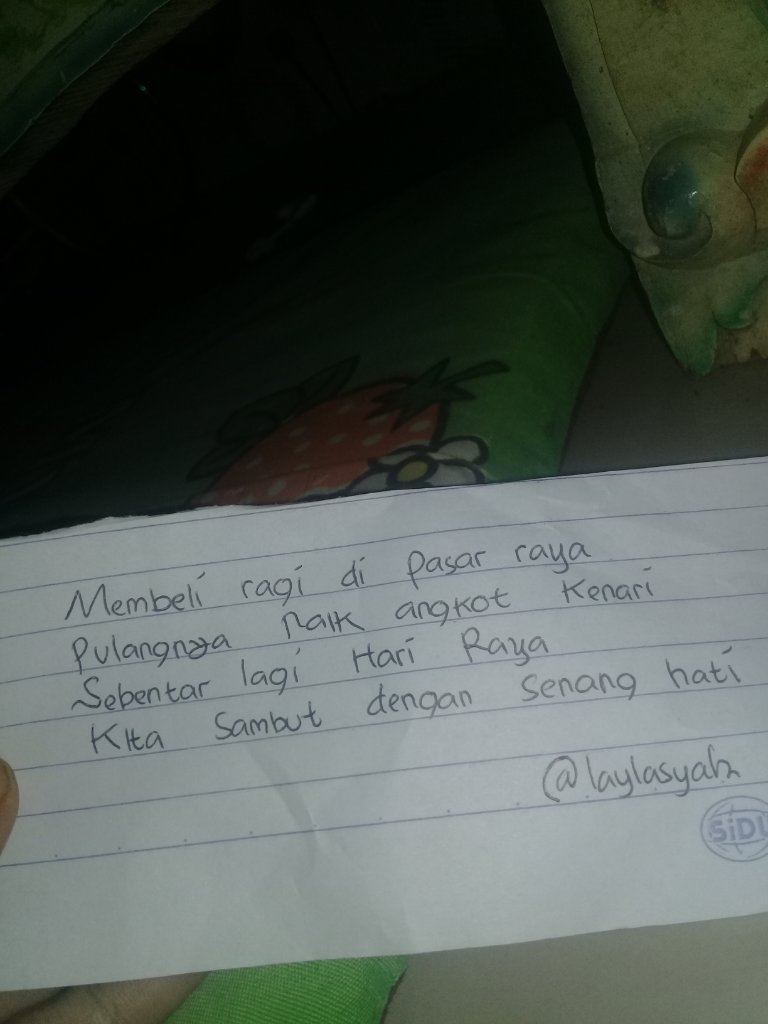 Membeli ragi di pasar raya
Pulangnya naik angkot Kenari
Sebentar lagi Hari Raya
Kita Sambut dengan senang hati
@laylasyahz
SiDU